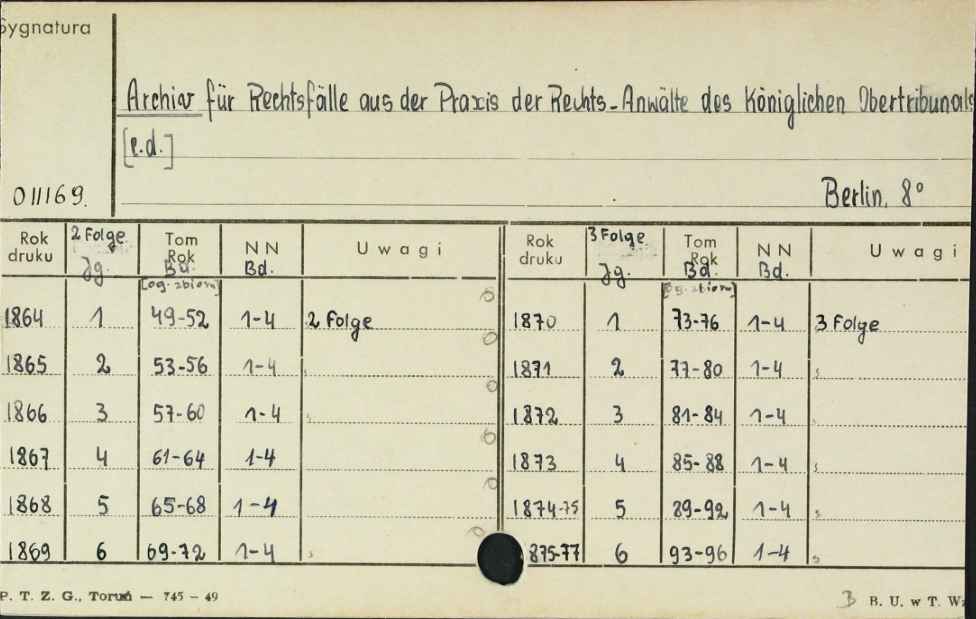 Sygnatura
Archiv für Rechtsfälle aus der Praxis der Rechts-Anwälte des Königlichen Obertribunals
[e.d.]
011169.
Berlin, 8°
Rok druku 2 Folge Jg. Tom Rok Bd. [og. zbioru] NN Bd. Uwagi Rok druku 3 Folge Jg. Tom Rok Bd. [og. zbioru] NN Bd. Uwagi
1864 1 49-52 1-4 2 Folge 1870 1 73-76 1-4 3 Folge
1865 2 53-56 1-4 1871 2 77-80 1-4 "
1866 3 57-60 1-4 " 1872 3 81-84 1-4
1867 4 61-64 1-4 1873 4 85-88 1-4 "
1868 5 65-68 1-4 1874-75 5 89-92 1-4 "
1869 6 69-72 1-4 " 875-77 6 93-96 1-4 "
P. T. Z. G., Toruń — 745 – 49
B. U. w T. W